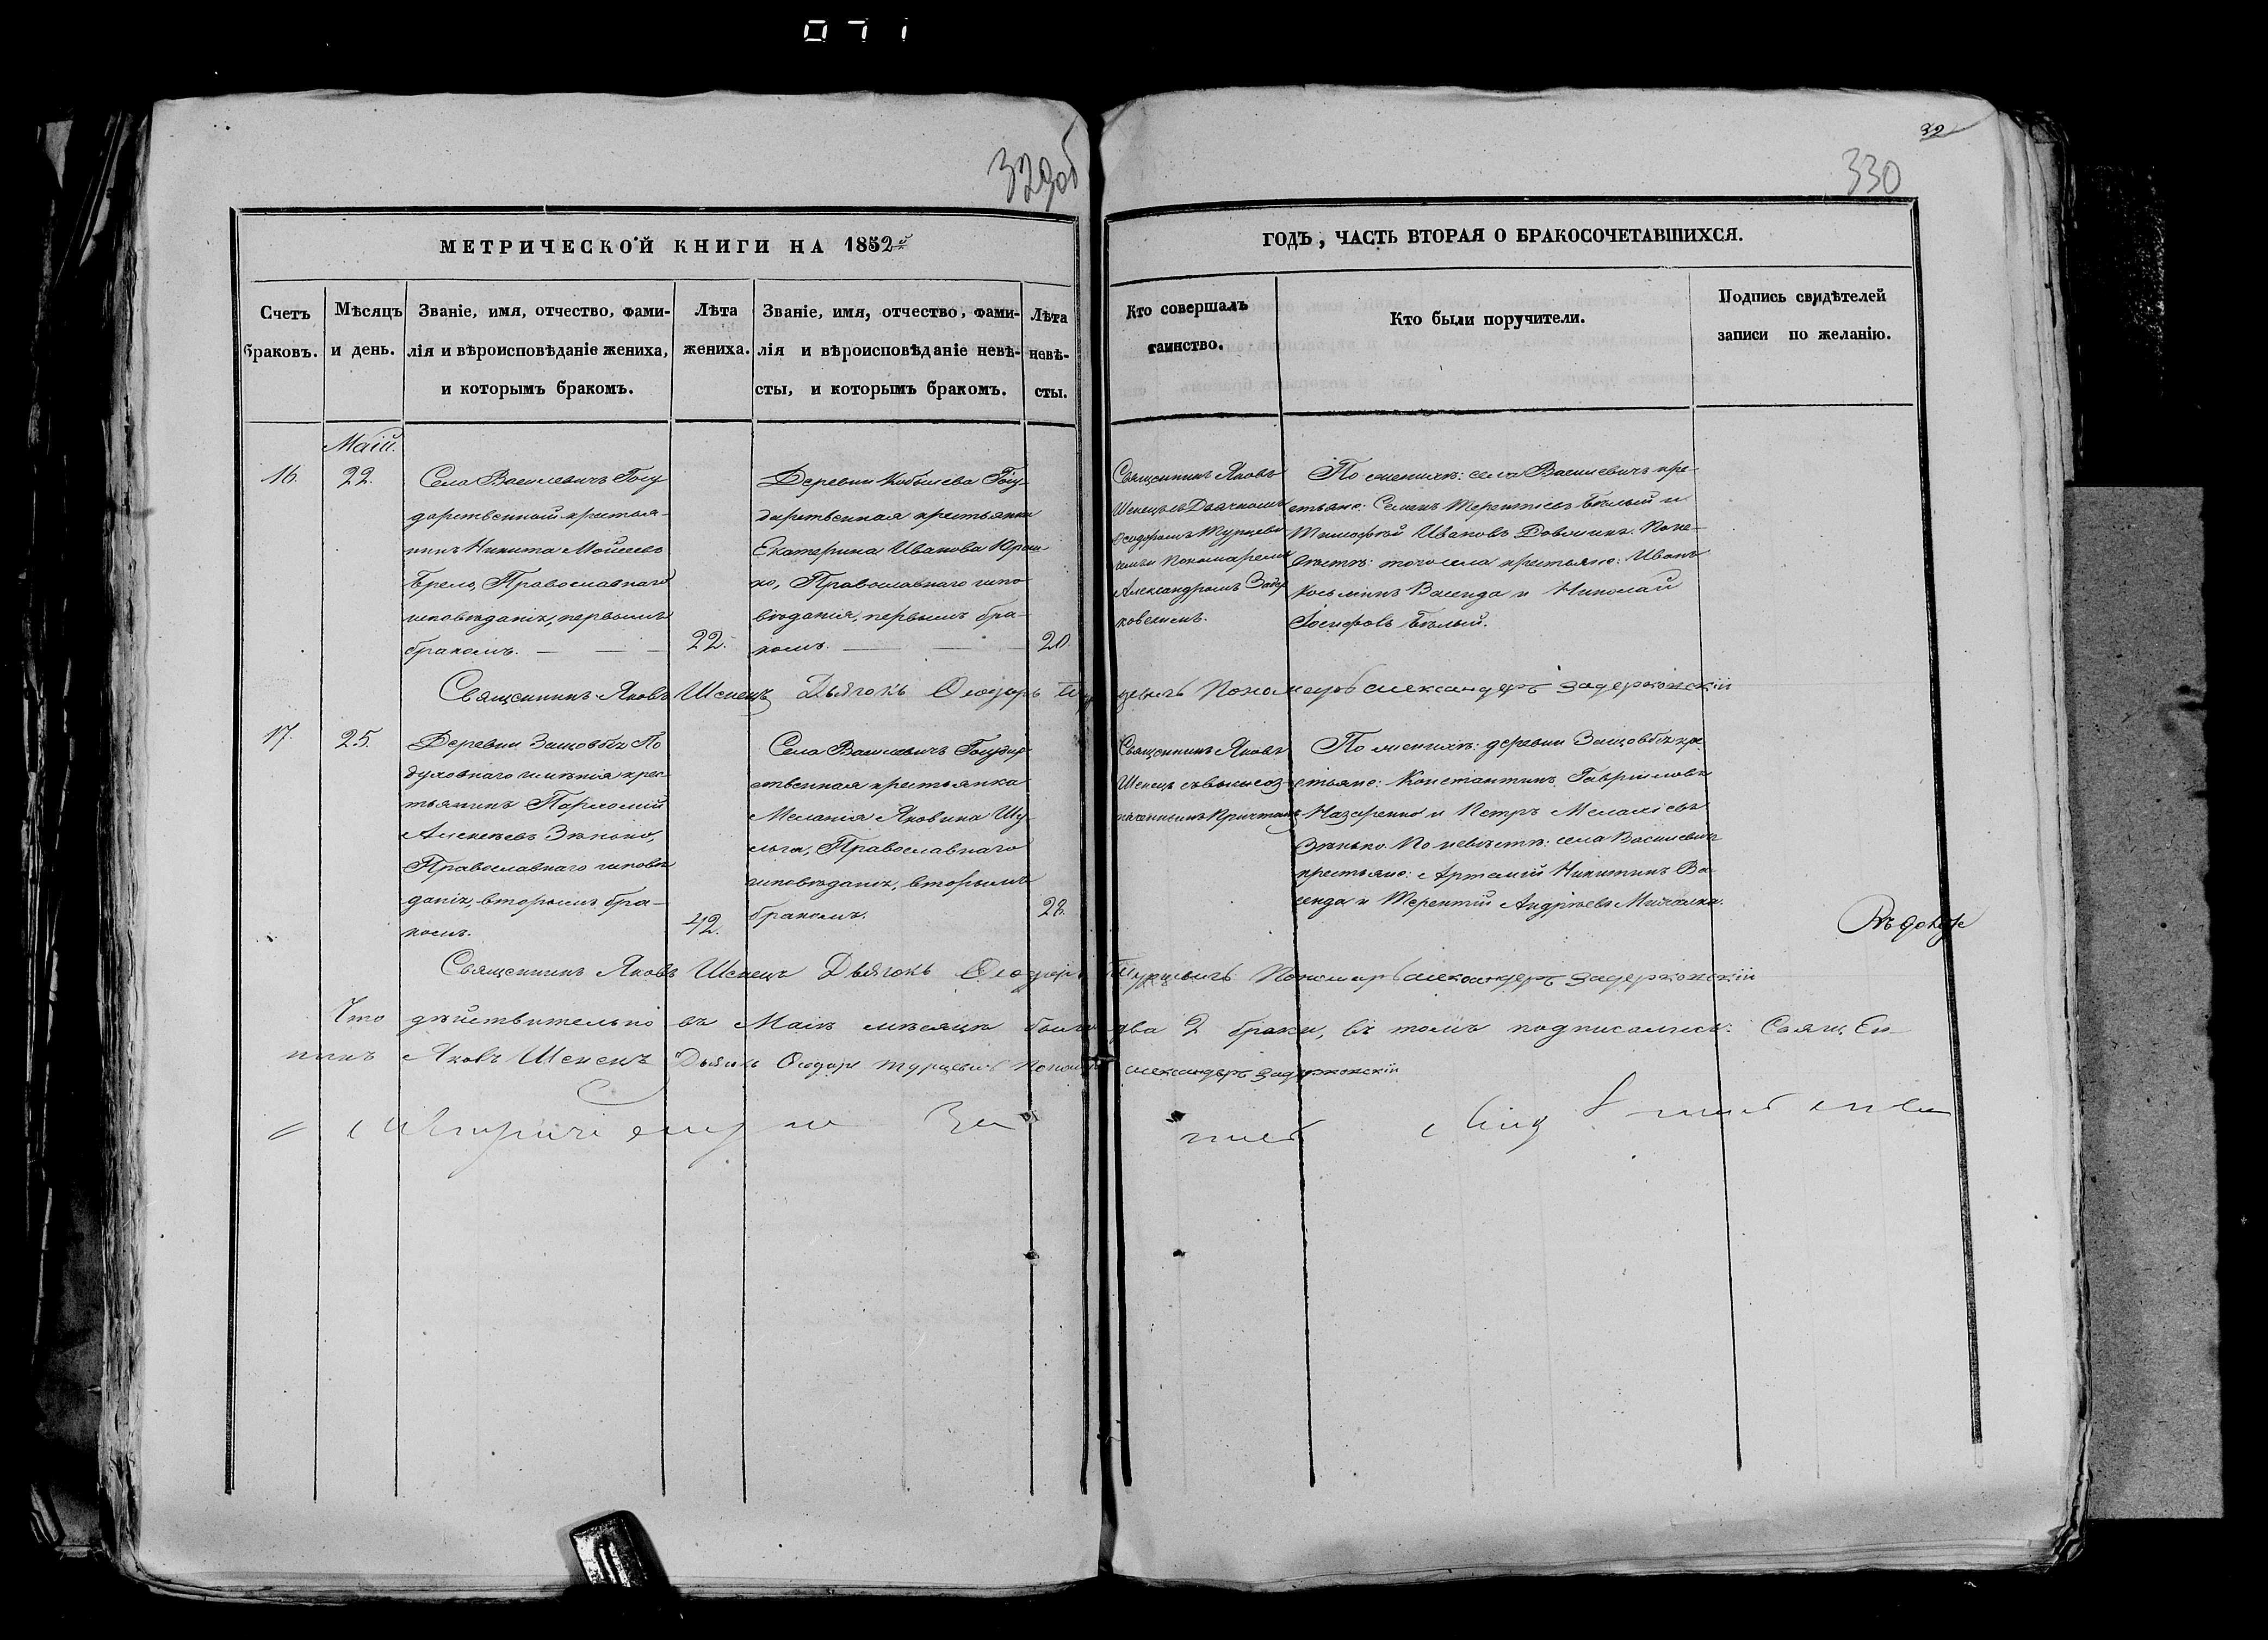 071
329об
32
330
МЕТРИЧЕСКОЙ КНИГИ НА 1852й
ГОДЪ, ЧАСТЬ ВТОРАЯ О БРАКОСОЧЕТАВШИХСЯ.
Счетъ
браковъ.
Мѣсяцъ
и день.
Званіе, имя, отчество, фами-
лія и вѣроисповѣданіе жениха,
и которымъ бракомъ.
Лѣта
жениха.
Званіе, имя, отчество, фами-
лія и вѣроисповѣданіе невѣ-
сты, и которымъ бракомъ.
Лѣта
невѣ-
сты.
Кто совершалъ
таинство.
Кто были поручители.
Подпись свидѣтелей
записи по желанію.
Маій.
16.
22.
Села Василевичъ Госу
дарственной крестья-
нинъ Никита Мойсеевъ
Брель, Православнаго
исповѣданія, первымъ
бракомъ.
22.
Деревни Кобылева Госу
дарственная крестьянка
Екатерина Иванова Юраш-
ко, Православнаго испо
вѣданія, первымъ бра-
комъ.
20.
Священникъ Яковъ
Шенецъ съ Дьячкомъ
Ѳеодоромъ Турцеви-
чемъ и Пономаремъ
Александромъ Задер
ковскимъ.
По женихѣ: села Василевичъ кре-
стьяне: Семенъ Терентіевъ Бѣлый и
Тимофей Ивановъ Довжикъ. По не-
вѣстѣ: того села крестьяне: Иванъ
Косьминъ Васенда и Николай
Іосифовъ Бѣлый.
Священникъ Яковъ Шенецъ Дьячокъ Ѳеодоръ Турцевичъ Пономарь Александръ Задерковскій
17.
25.
Деревни Защовбья По
духовнаго имѣнія крес-
тьянинъ Пархомій
Алексѣевъ Зѣнько,
Православнаго исповѣ
данія, вторымъ бра-
комъ.
42.
Села Василевичъ Государ
ственная крестьянка
Меланія Яковина Шу-
льга, Православнаго
исповѣданія, вторымъ
бракомъ.
28.
Священникъ Яковъ
Шенецъ съ вышеоз-
наченнымъ Причтомъ
По женихѣ: деревни Защовбья кре
стьяне: Константинъ Гавріиловъ
Назаренко и Петръ
Зѣнько. По невѣстѣ: села Василевичъ
крестьяне: Артемій Никитинъ Ва
сенда и Терентій Андрѣевъ
Священникъ Яковъ Шенецъ Дьячокъ Ѳеодоръ Турцевичъ Пономарь Александръ Задерковскій
Что дѣйствительно въ Маіѣ мѣсяцѣ было два 2 брака, въ томъ подписались: Священ-
никъ Яковъ Шенецъ Дьячокъ Ѳеодоръ Турцевичъ Пономарь Александръ Задерковскій